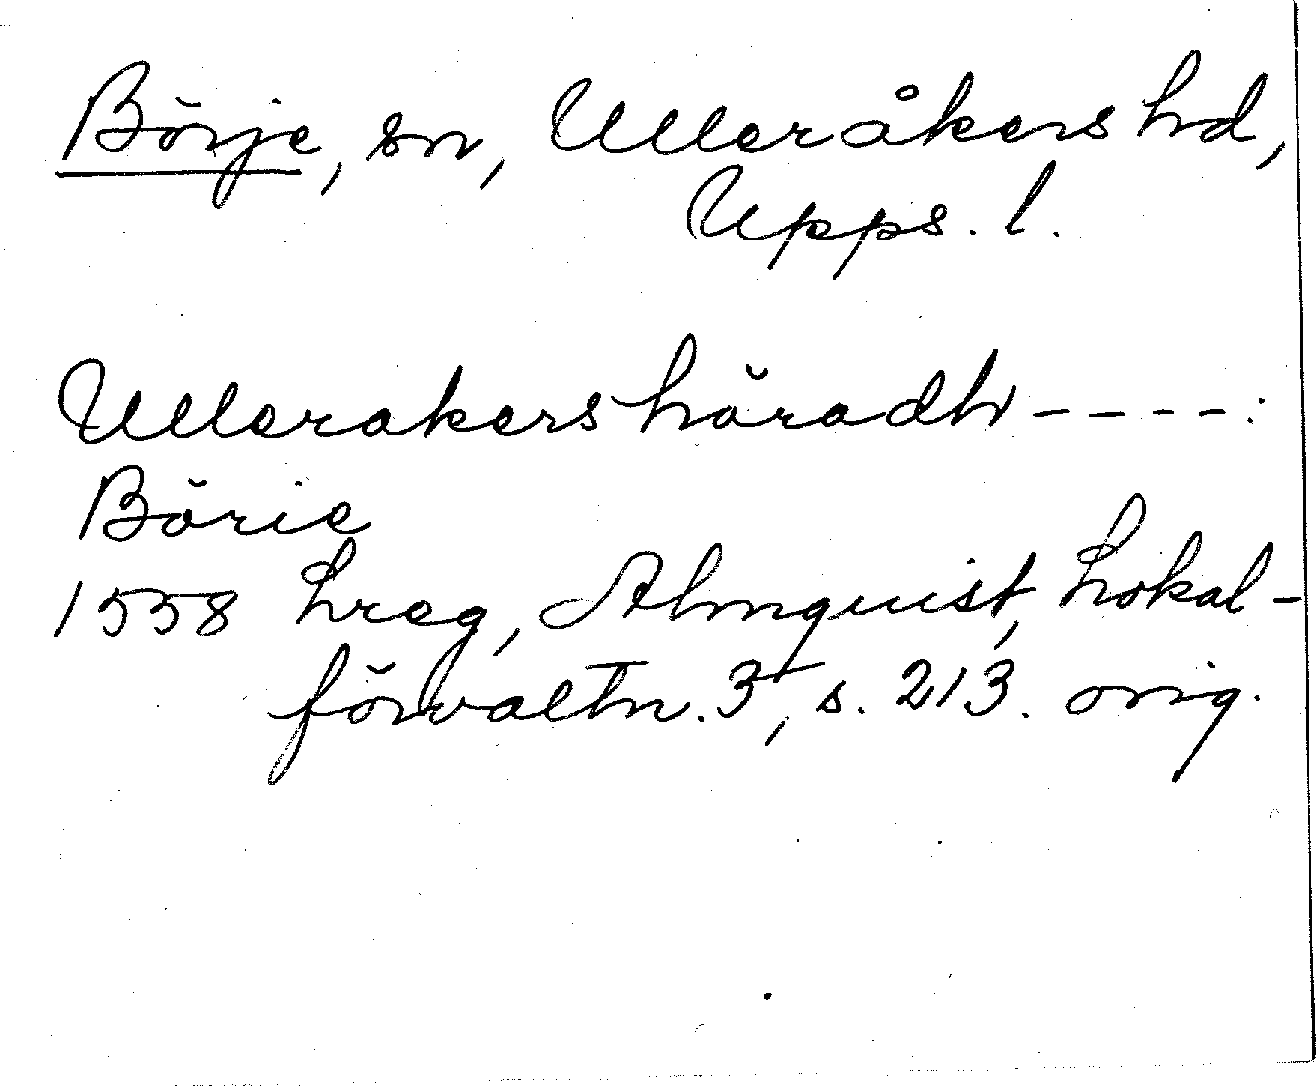 Börje, sn, Ulleråkers hd,
Upps. l.
Ullerakers häradh ----:
Börie
1558 Lreg, Almquist, Lokal-
förvaltn. 3, s. 213. orig.